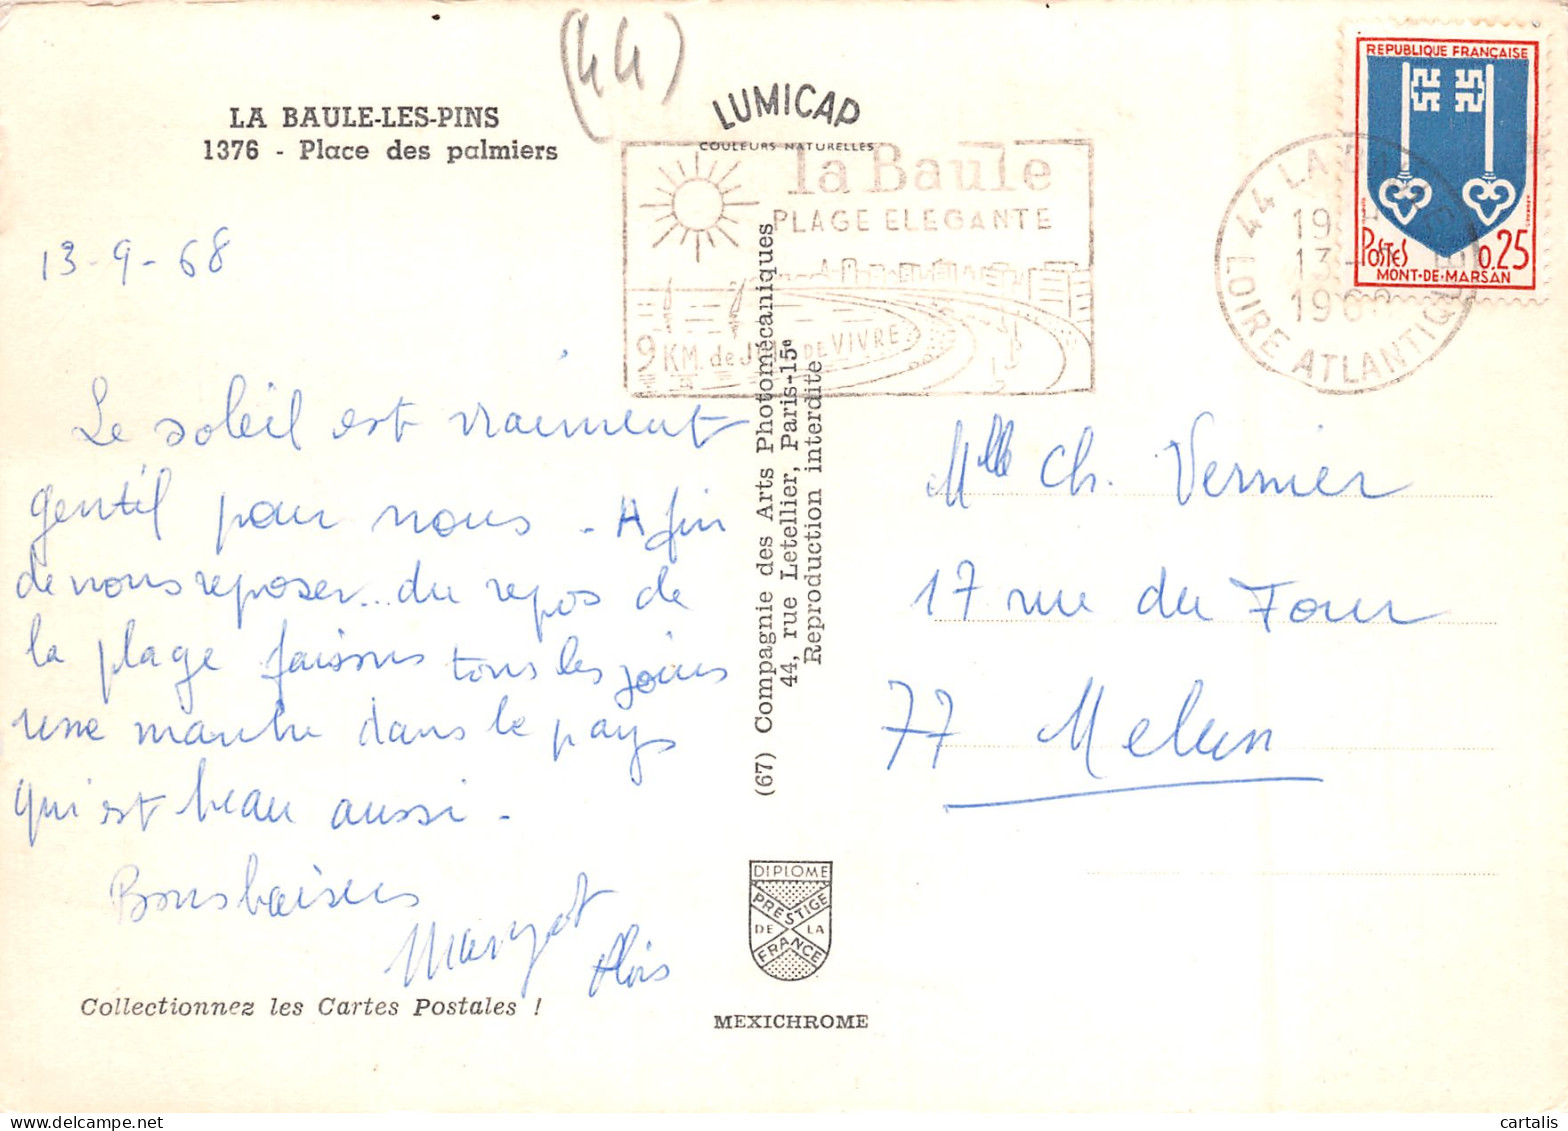 (44)
LA BAULE-LES-PINS
1376 - Place des palmiers
LUMICAP
COULEURS NATURELLES
la Baule
PLAGE ELEGANTE
9 KM. de JOIE DE VIVRE
44 LA BAULE
19
13-
1968
LOIRE ATLANTIQUE
REPUBLIQUE FRANÇAISE
POSTES 0,25
MONT-DE-MARSAN
13-9-68
Le soleil est vraiment
gentil pour nous - Afin
de nous reposer... du repos de
la plage faisons tous les jours
une marche dans le pays
qui est beau aussi -
Bons baisers
Margot
Aloïs
Collectionnez les Cartes Postales !
(67) Compagnie des Arts Photomécaniques
44, rue Letellier, Paris-15e
Reproduction interdite
DIPLOME
PRESTIGE
DE LA
FRANCE
MEXICHROME
Mlle Ch. Vernier
17 rue du Four
77 Melun
cartalis